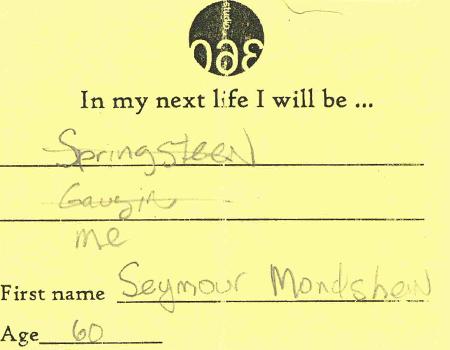 studio
360
In my next life I will be ...
Springsteen
Gaugin
me
First name Seymour Mondshein
Age 60